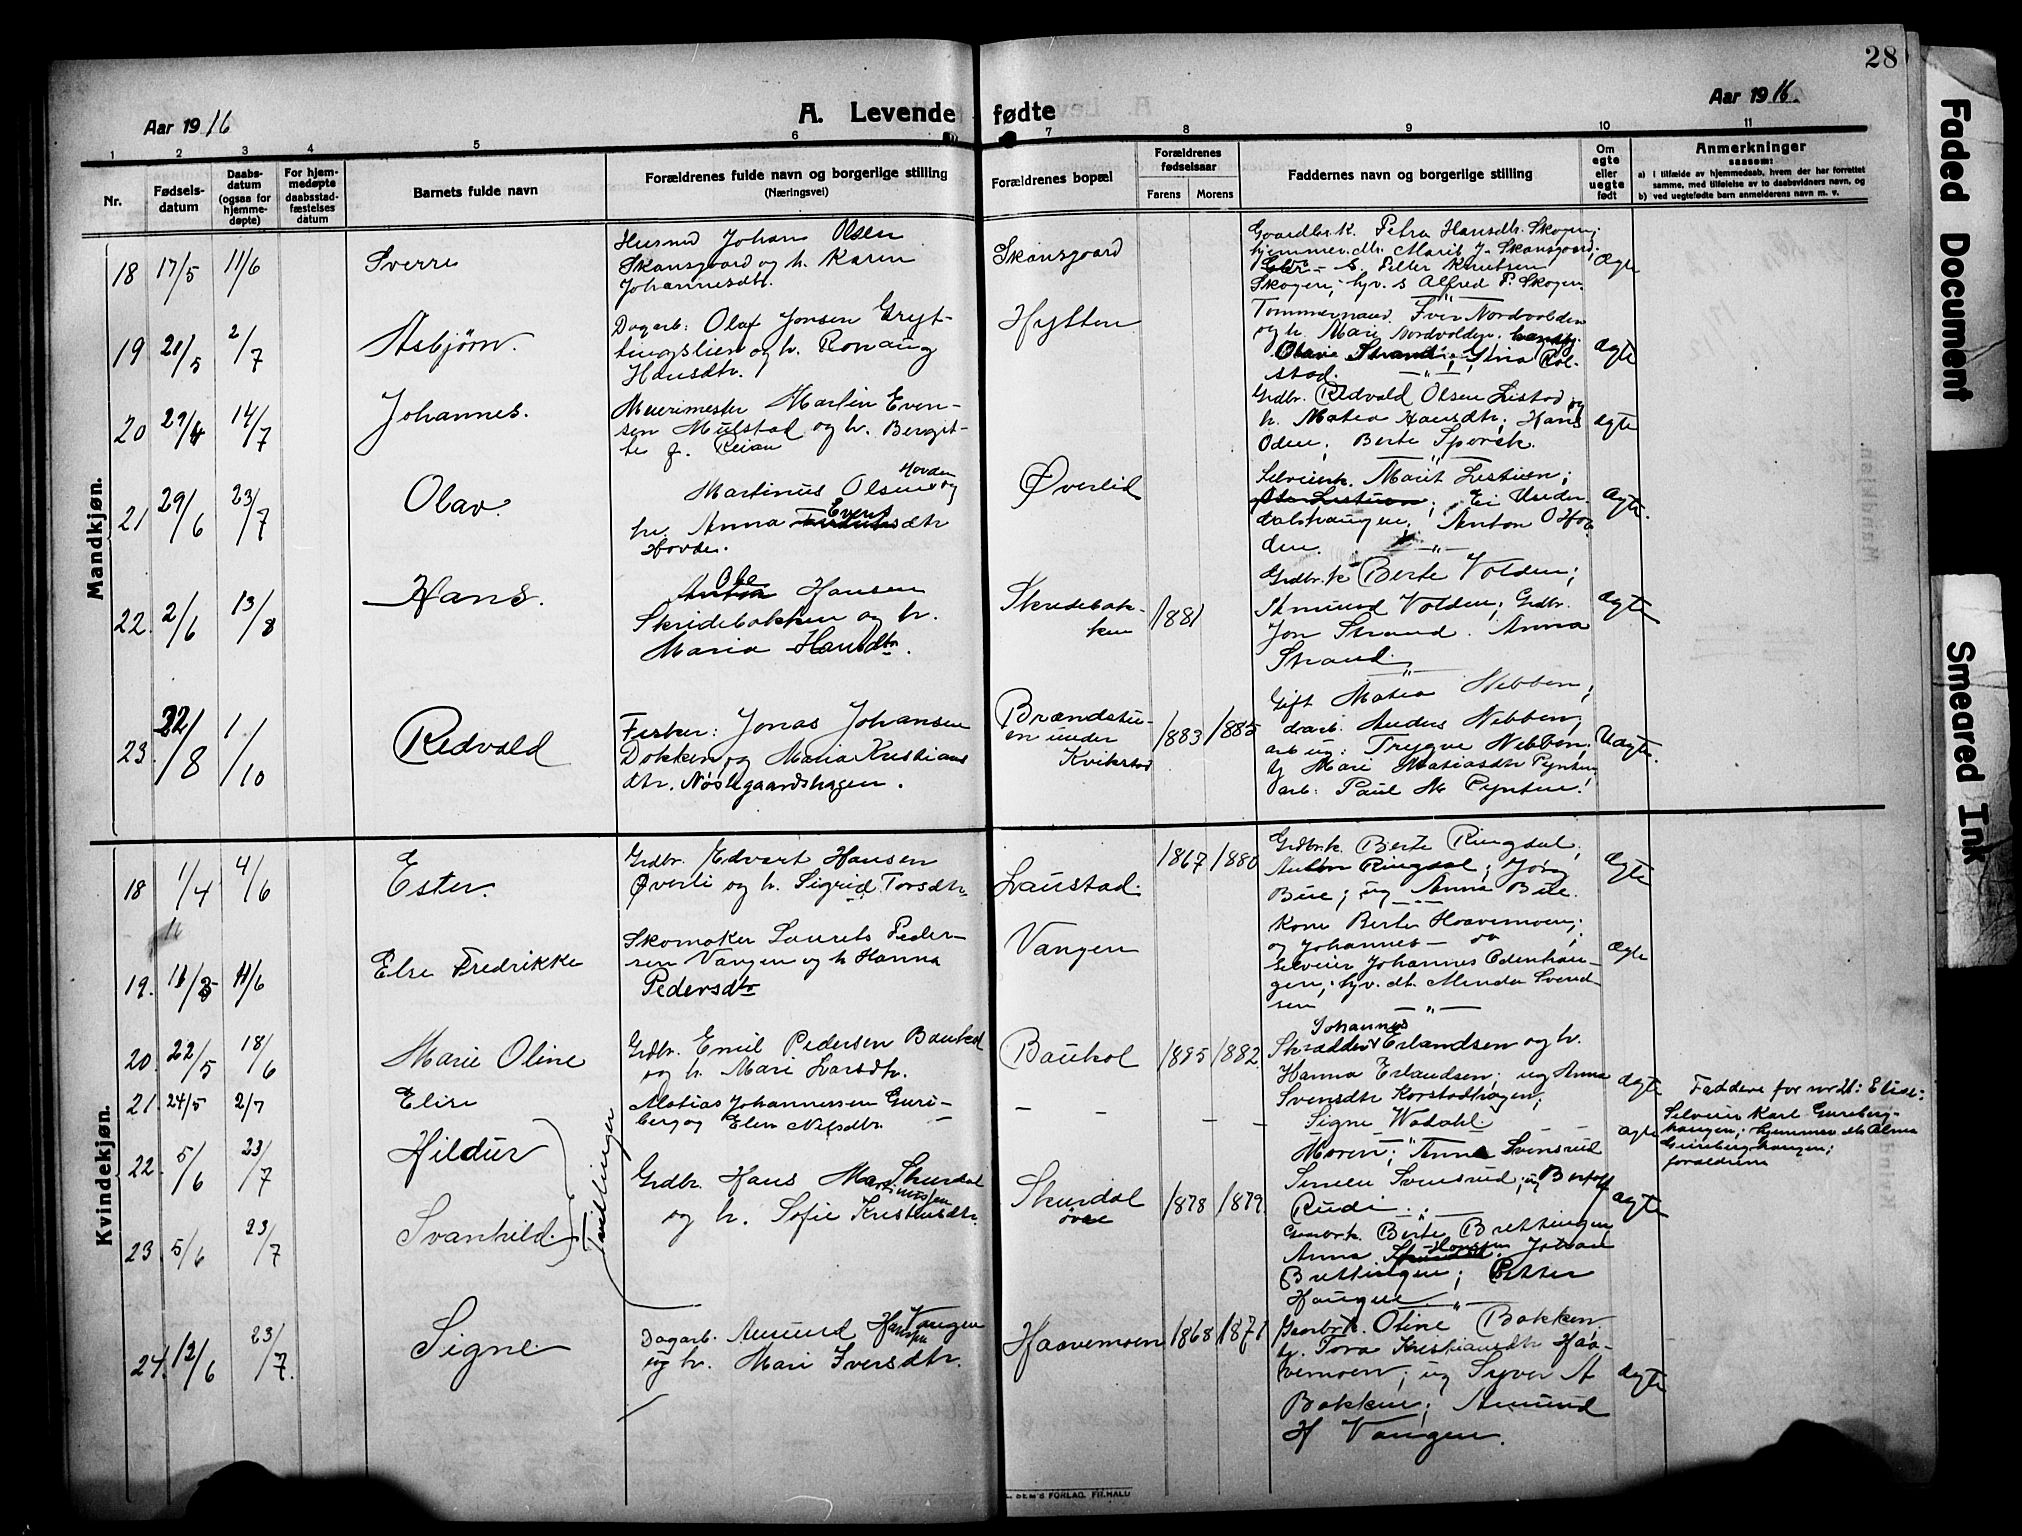 28
Aar 1916
A. Levende fødte
Aar 1916.
1 2 3 4 5 6 7 8 9 10 11
Nr.
Fødsels-
datum
Daabs-
datum
(ogsaa for
hjemme-
døpte)
For hjem-
medøpte
daabsstad-
fæstelses
datum
Barnets fulde navn
Forældrenes fulde navn og borgerlige stilling
(Næringsvei)
Forældrenes bopæl
Forældrenes
fødselsaar
Farens Morens
Faddernes navn og borgerlige stilling
Om
egte
eller
uegte
født
Anmerkninger
saasom:
a) i tilfælde av hjemmedaab, hvem der har forrettet
samme, med tilføielse av to daabsvidners navn, og
b) ved uegtefødte barn anmelderens navn m. v.
Mandkjøn.
18 17/5 11/6 Sverre
Husmd Johan Olsen
Skansgaard og h. Karen
Johannesdtr.
Skansgaard
Gaardbr.k. Petra Hansdtr. Skogen;
hjemmev. dtr. Marit J. Skansgaard;
S. Petter Knutsen
Skogen; hjv. s Alfred P. Skogen
Ægte
19 21/5 2/7 Asbjørn.
Dagarb: Olaf Jonsen Gryt-
tingslien og h. Rønaug
Hansdtr.
Hytten
Tømmermand Iver Nordvolden
og h. Mari Nordvolden;
Olava Strand; Gina Kol-
stad.
Ægte
20 29/4 14/7 Johannes.
Murimester Martin Even-
sen Mulstad og h. Bergit-
te f. Reian
Grdbr. Redvald Olsen Listad og
h. Matea Hansdtr; Hans
Oden; Berte Sporck.
Ægte
21 29/6 23/7 Olav.
Martinus Olsen Hovden og
h. Anna Evensdtr
Hovde.
Øverlid
Selveierk. Marit Listuen;
Ei Useda-
lshaugen; Anton O Hov-
den.
Ægte.
22. 2/6 13/8 Hans.
Ole Hansen
Skridebakken og h.
Maria Hansdtr.
Skridebak-
ken
1881
Grdbr.k Berte Volden;
Amund Volden; Grdbr.
Jon Strand. Anna
Strand.
Ægte
23. 22/8 1/10 Redvald
Fisker: Jonas Johansen
Dokken og Maria Kristians
dtr. Nøstegaardshagen.
Brændstu-
en under
Kvikstad
1883 1885
Gift Matea Nebben;
darb. Anders Nebben;
arb ug: Trygve Nebben;
Mari Matiasdtr Pynten;
arb: Paul M Pynten.
Uægte.
Kvindekjøn.
18 1/4 4/6 Ester.
Grdbr. Edvart Hansen
Øverli og h. Sigrid Torsdtr
Laustad.
1867 1880
Grdbr.k. Berte Ringdal;
Anton Ringdal; Jørg
Bue; ug Anna Bue.
Ægte
19. 11/3 11/6 Else Fredrikke
Skomaker Laurits Peder-
sen Vangen og h Hanna
Pedersdtr
Vangen
Kone Berte Haavemoen;
og Johannes – do ;
selveier Johannes Odenhau-
gen; hjv. dt. Minda Svend-
sen
Ægte
20. 22/5 18/6 Marie Oline
Grdbr. Emil Pedersen Baukol
og h. Mari Larsdtr.
Baukol 1895 1882
Johannes
Skrædder Erlandsen og h.
Hanna Erlandsen; ug Anna
Svensdtr Korstadhagen;
Signe Wadahl.
Ægte
21. 24/5 2/7 Elise
Matias Johannessen Guri-
berg og Elen Nilsdtr.
Ægte
Faddere for nr 21: Elise:
Selveier Karl Guriberg-
haugen; hjemmev. dtr Alma
Guriberghaugen;
forældrene
22. 5/6 23/7 Hildur
23 5/6 23/7 Svanhild.
Tvillinger
Grdbr. Hans Martinussen Skurdal
og h. Sofie Kristensdtr.
Skurdal
øvre
1878 1879.
Moren; Anna Svensrud
Simen Svensrud; ug Bertoff
Rudi.
Gaardbr.k. Berte Brettingen
Anna Hanssen Johan
Brettingen; Petter
Haugen
Ægte
24. 12/6 23/7. Signe
Dagarb. Amund Hansen Vangen
og h. Mari Iversdtr.
Haavemoen 1868 1871
Gaardbr.k. Oline Bakken.
Tora Kristiansdtr Haa-
vemoen; ug Syver A
Bakken; Amund
H Vangen.
Ægte
DEM'S FORLAG. FR.HALD
Faded Document
Smeared Ink